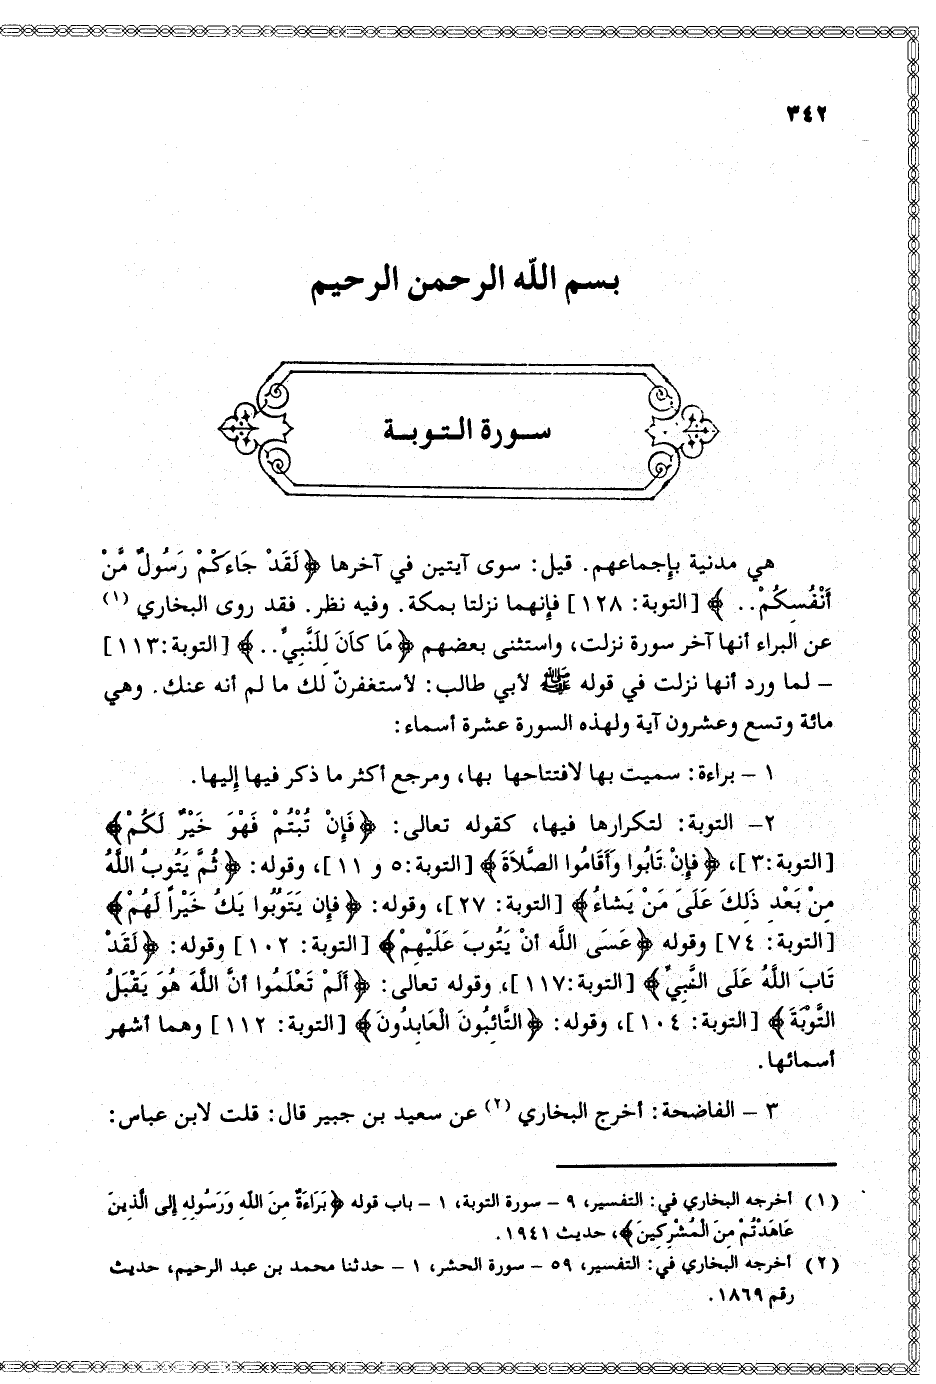 ٣٤٢
بسم الله الرحمن الرحيم
سورة التوبة
هي مدنية بإجماعهم. قيل: سوى آيتين في آخرها ﴿لَقَدْ جَاءَكُمْ رَسُولٌ مَّنْ
أَنْفُسِكُمْ.. ﴾ [التوبة: ١٢٨] فإنهما نزلتا بمكة. وفيه نظر. فقد روى البخاري (١)
عن البراء أنها آخر سورة نزلت، واستثنى بعضهم ﴿مَا كَانَ لِلنَّبِيِّ..﴾ [التوبة:١١٣]
– لما ورد أنها نزلت في قوله ﷺ لأبي طالب: لأستغفرنّ لك ما لم أنه عنك. وهي
مائة وتسع وعشرون آية ولهذه السورة عشرة أسماء:
١ – براءة: سميت بها لافتتاحها بها، ومرجع أكثر ما ذكر فيها إليها.
٢– التوبة: لتكرارها فيها، كقوله تعالى: ﴿فَإِنْ تُبْتُمْ فَهْوَ خَيْرٌ لَكُمْ﴾
[التوبة:٣]، ﴿فإِنْ تَابُوا وَأَقَامُوا الصَّلاَةَ﴾ [التوبة:٥ و ١١]، وقوله: ﴿ثُمَّ يَتُوبُ اللَّهُ
مِنْ بَعْدِ ذَلِكَ عَلَىَ مَنْ يَشاءُ﴾ [التوبة: ٢٧]، وقوله: ﴿فإن يَتَوُبُوا يَكُ خَيْراً لَهُمْ﴾
[التوبة: ٧٤] وقوله ﴿عَسَى اللَّه أنْ يَتُوبَ عَلَيْهِمْ﴾ [التوبة: ١٠٢] وقوله: ﴿لَقَدْ
تَابَ اللَّهُ عَلَى النَّبِيِّ﴾ [التوبة:١١٧]، وقوله تعالى: ﴿أَلَمْ تَعْلَمُوا أنَّ اللَّهَ هُوَ يَقْبَلُ
التَّوْبَةَ﴾ [التوبة: ١٠٤]، وقوله: ﴿التَّائِبُونَ الْعَابِدُونَ﴾ [التوبة: ١١٢] وهما أشهر
أسمائها.
٣ – الفاضحة: أخرج البخاري (٢) عن سعيد بن جبير قال: قلت لابن عباس:
(١) أخرجه البخاري في: التفسير، ٩ – سورة التوبة، ١ – باب قوله ﴿بَرَاءَةٌ مِنَ اللَّهِ وَرَسُولِهِ إلى الَّذِينَ
عَاهَدْتُمْ مِنَ الْمُشْرِكِينَ﴾، حديث ١٩٤١.
(٢) أخرجه البخاري في: التفسير، ٥٩ – سورة الحشر، ١ – حدثنا محمد بن عبد الرحيم، حديث
رقم ١٨٦٩.